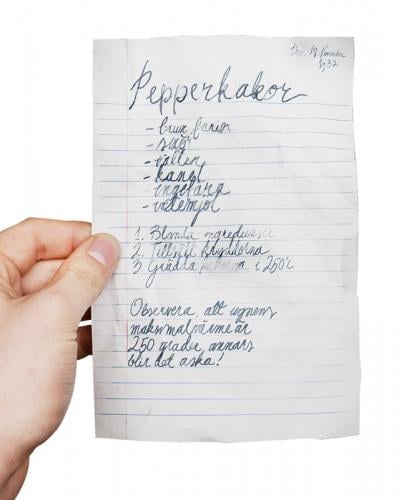 Den 19 November
1932
Pepperkakor
- brun farin
- smör
- vatten
- kanel
- ingefära
- vetemjöl
1. Blanda ingredienser
2. Tillsätt kryddorna
3 Grädda kakorna i 250°c
Observera, att ugnens
maksimalvärme är
250 grader annars
blir det aska!